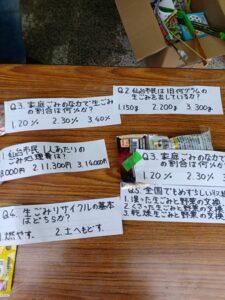 Q3. 家庭ごみのなかで生ごみ
の割合は何%か?
1. 20% 2. 30% 3. 40%
Q2 仙台市民は1日何グラムの
生ごみを出しているか?
1. 150g 2. 200g 3. 300g
仙台市民1人あたりの
ごみ処理費は?
8,000円 2. 11,300円 3. 14,000円
Q3. 家庭ごみのなかで
の割合は何%
1. 20% 2. 30%
Q4. 生ごみリサイクルの基本
はどちらか?
1. 燃やす. 2. 土へもどす.
Q5. 全国でもめずらしい
1. 湿った生ごみと野菜の交換
2. くさった生ごみと野菜の交換
3. 乾燥生ごみと野菜の交換